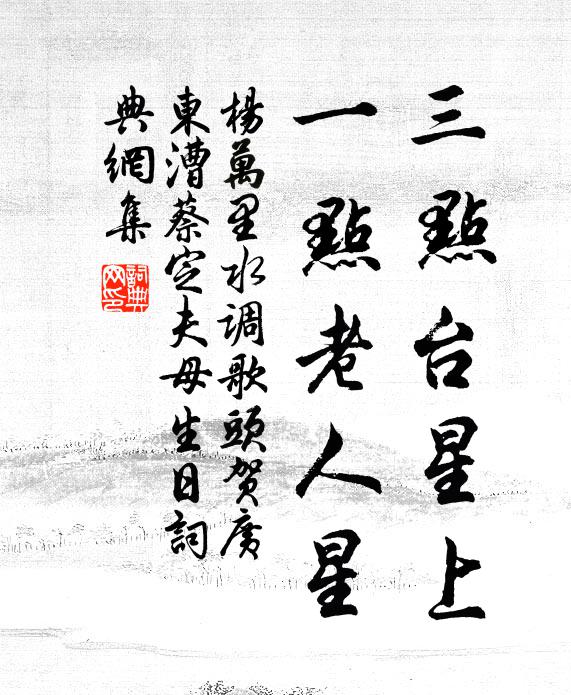 三點台星上
一點老人星
楊萬里水调歌頭賀廣
東漕蔡定夫母生日詞
典網集
詞典
网印